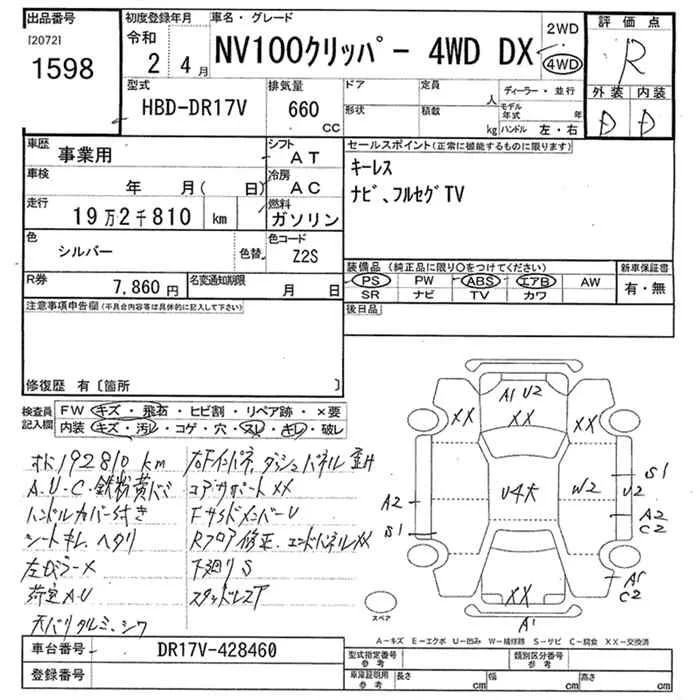 出品番号
[2072]
1598
初度登録年月
令和
2 4月
車名・グレード
NV100クリッパー 4WD DX
2WD
4WD
評価点
R
外装 内装
D D
型式
HBD-DR17V
排気量
660 CC
ドア
形状
定員
人
積載
kg
ディーラー・並行
モデル年式 年
ハンドル 左・右
車歴
事業用
シフト
AT
車検
年 月( 日)
冷房
AC
走行
19万2千810 km
燃料
ガソリン
色
シルバー
色替
色コード
Z2S
R券
7,860円
名変通知期限
月 日
セールスポイント(正常に機能するものに限ります)
キーレス
ナビ、フルセグTV
装備品 (純正品に限り○をつけてください)
PS PW ABS エアB AW
SR ナビ TV カワ
新車保証書
有・無
後日品
注意事項申告欄(不具合内容等は具体的に記入して下さい)
修復歴 有〔箇所 〕
検査員記入欄
FW キズ・飛石・ヒビ割・リペア跡・×要
内装 キズ・汚レ・コゲ・穴・スレ・キレ・破レ
192810 km
A.U-C・鉄粉黄バミ
ハンドルカバー付き
シートキレ、ヘタリ
左ピラーX
荷室AU
天バリタルミ、シワ
右Fインパネ、ダッシュパネル
コアサポートXX
FサイドメンバーU
Rフロア修正、エンドパネルXX
下廻りS
スタッドレスタイヤ
A1 U2
XX
XX
XX
S1
U4大
W2
U2
A2
A2
C2
S1
XX
A1
C2
A1
スペア
A-キズ E-エクボ U-凹み W-補修跡 S-サビ C-腐食 XX-交換済
車台番号
DR17V-428460
登録番号
型式指定番号
参考
類別区分番号
参考
車庫証明用
参考
長さ cm
幅 cm
高さ cm